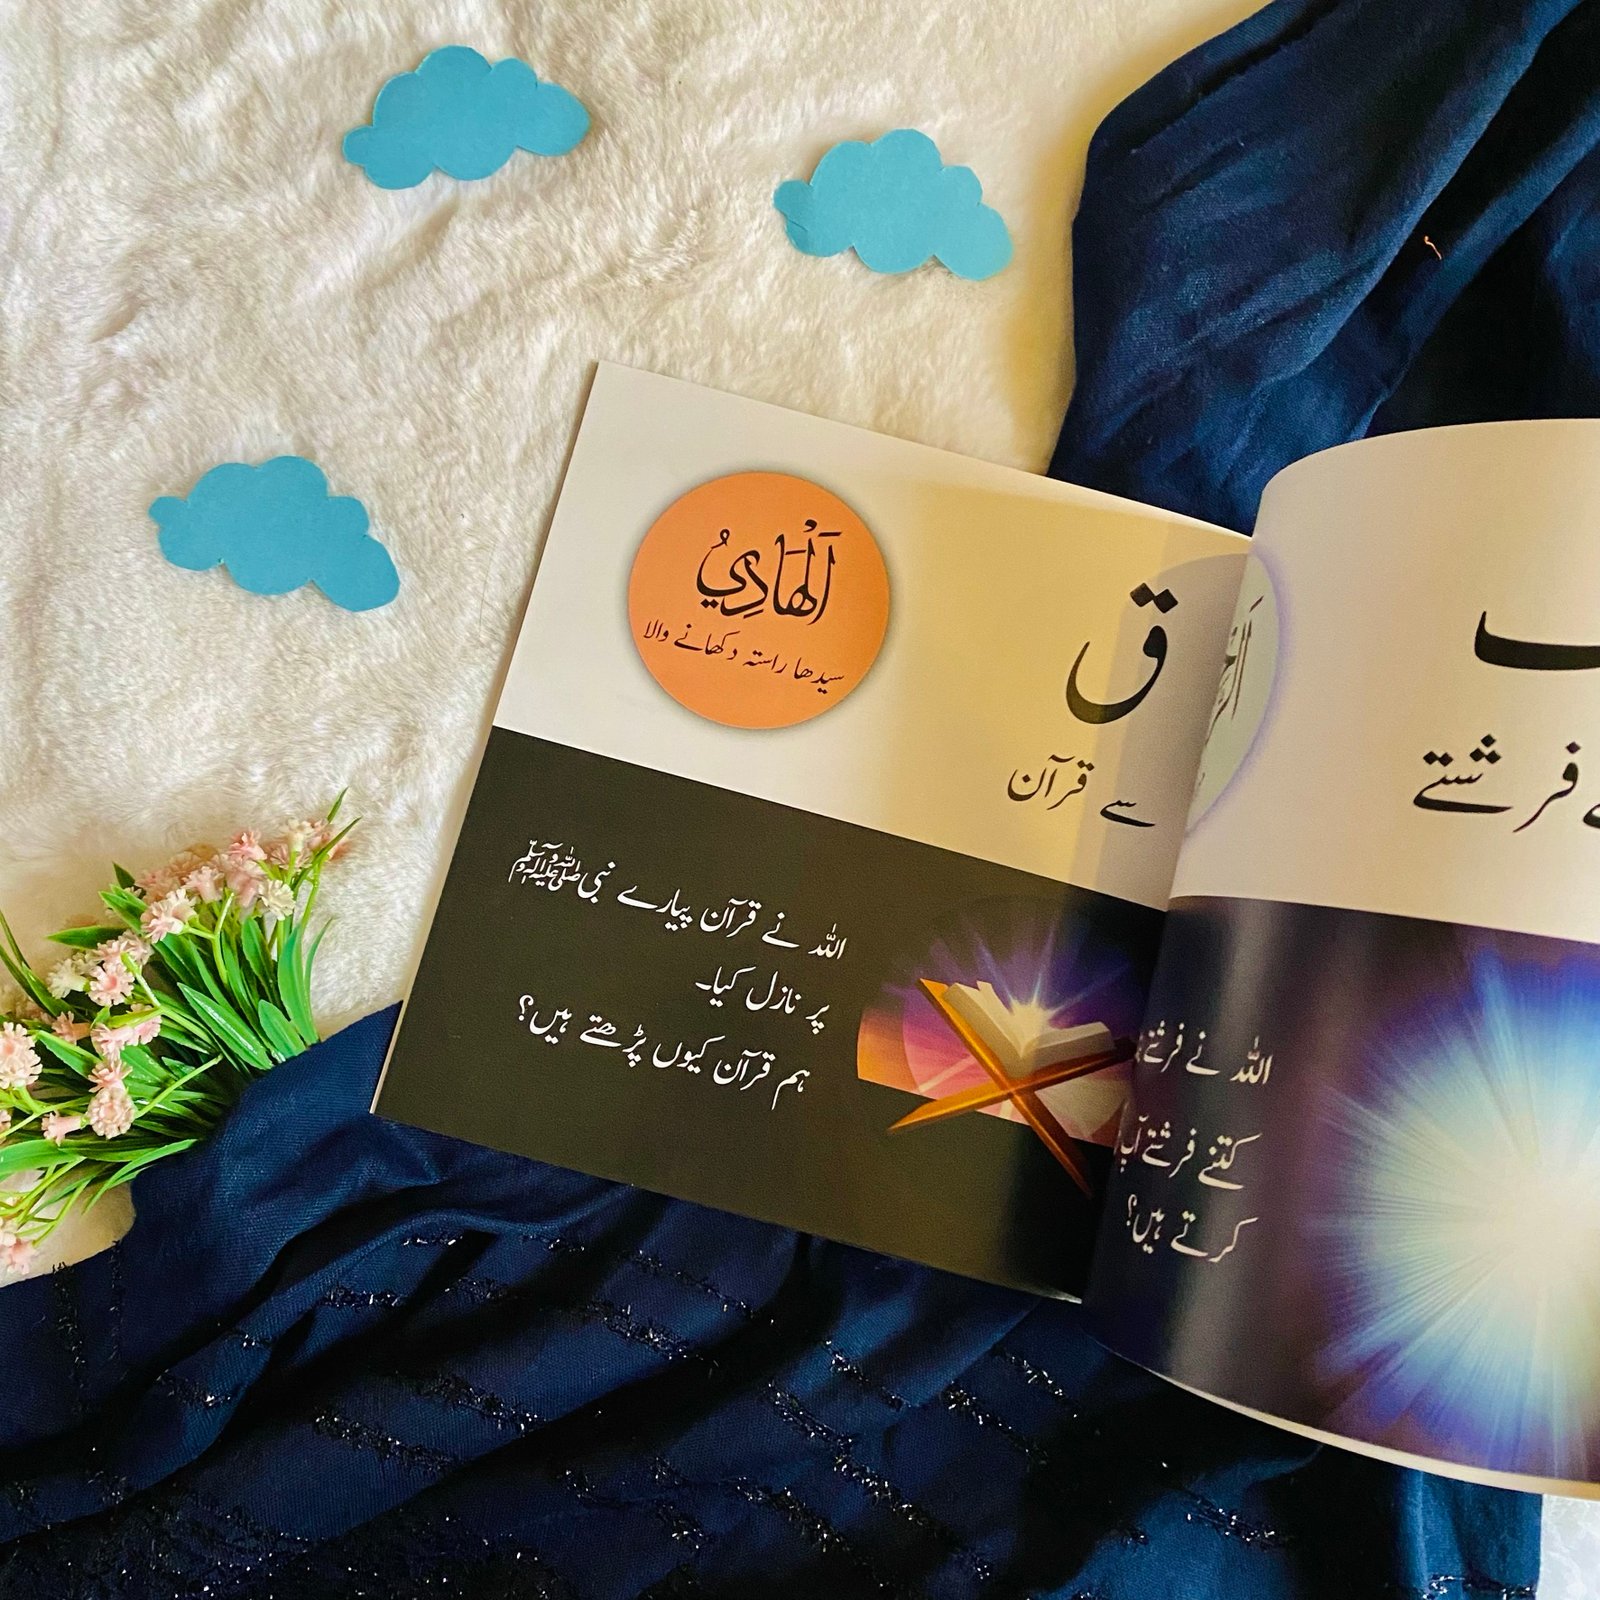 اَلْهَادِيُ
سیدھا راستہ دکھانے والا
ق
سے قرآن
اللہ نے قرآن پیارے نبی ﷺ
پر نازل کیا۔
ہم قرآن کیوں پڑھتے ہیں؟
ف
فرشتے
اللہ نے فرشتے
کتنے فرشتے آپ
کرتے ہیں؟